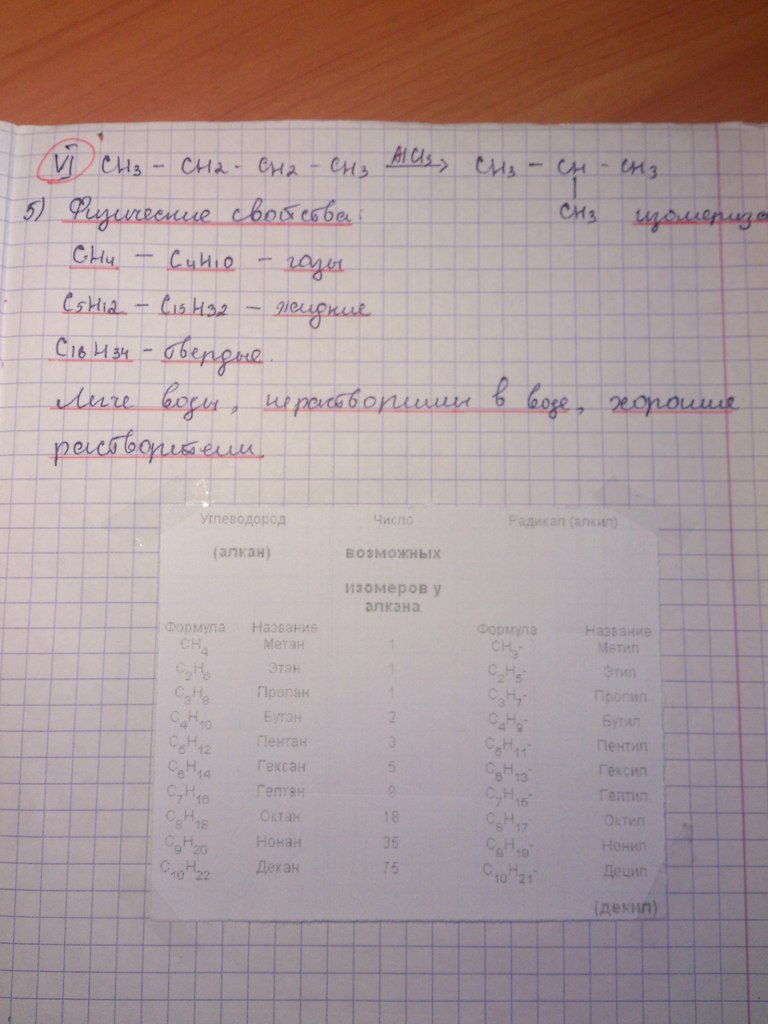 VI CH3 - CH2 - CH2 - CH3 AlCl3 → CH3 - CH - CH3
5) Физические свойства: CH3 изомериза
CH4 — C4H10 - газы
C5H12 - C15H32 - жидкие
C16H34 - твердые.
Легче воды, нерастворимы в воде, хорошие
растворители.
Углеводород Число Радикал (алкил)
(алкан) возможных
изомеров у
алкана
Формула Название Формула Название
CH4 Метан 1 CH3- Метил
C2H6 Этан 1 C2H5- Этил
C3H8 Пропан 1 C3H7- Пропил
C4H10 Бутан 2 C4H9- Бутил
C5H12 Пентан 3 C5H11- Пентил
C6H14 Гексан 5 C6H13- Гексил
C7H16 Гептан 9 C7H15- Гептил
C8H18 Октан 18 C8H17- Октил
C9H20 Нонан 35 C9H19- Нонил
C10H22 Декан 75 C10H21- Децил
(декил)